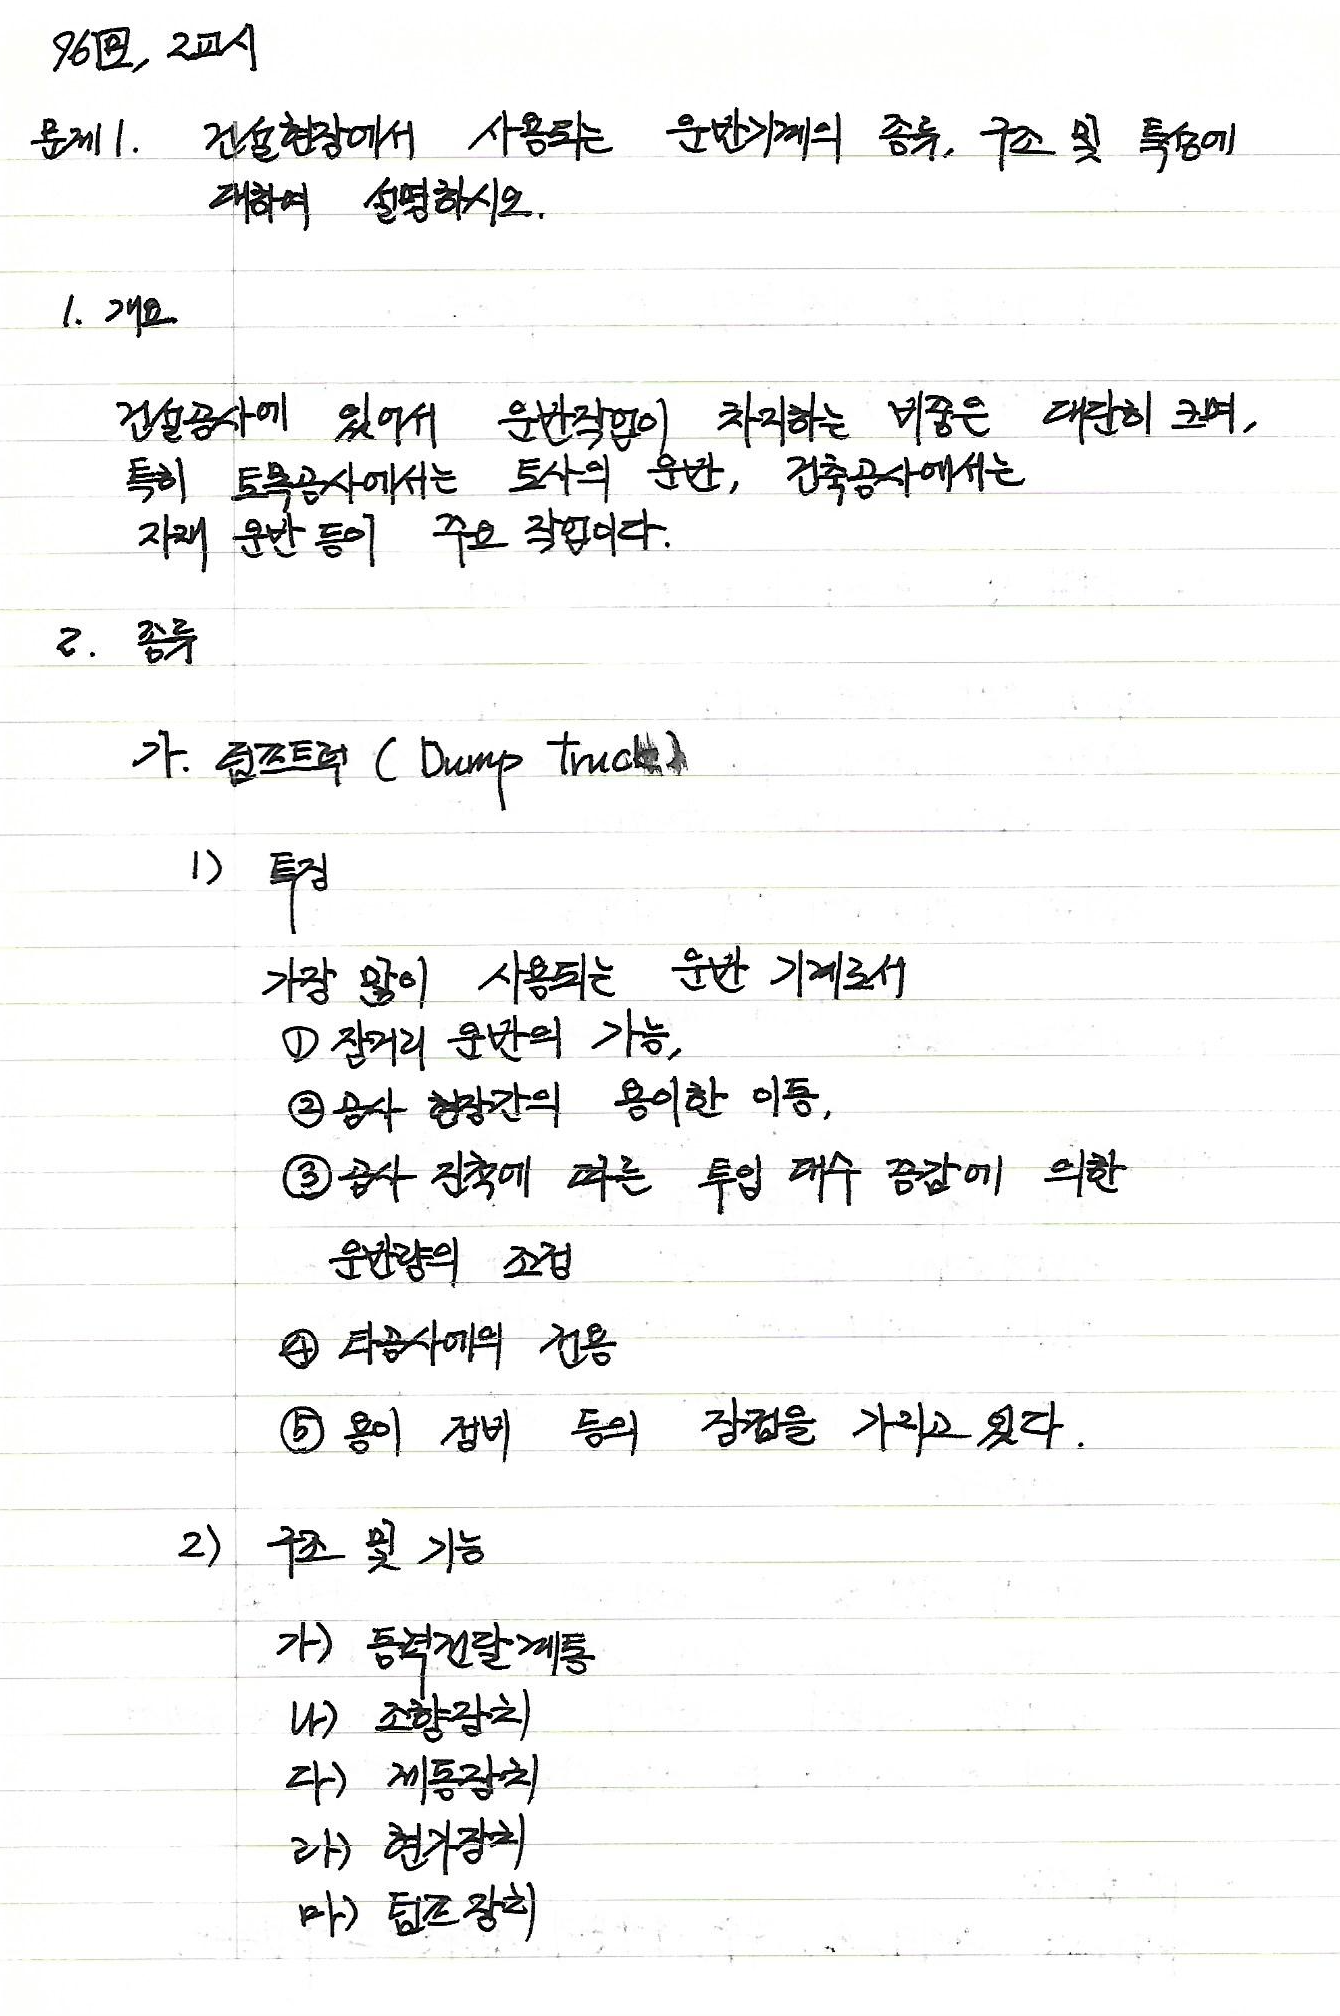 96회, 2교시
문제1. 건설현장에서 사용되는 운반기계의 종류, 구조 및 특성에
대하여 설명하시오.
1. 개요
건설공사에 있어서 운반작업이 차지하는 비중은 대단히 크며,
특히 토목공사에서는 토사의 운반, 건축공사에서는
자재 운반 등이 주요 작업이다.
2. 종류
가. 덤프트럭 (Dump truck)
1) 특징
가장 많이 사용되는 운반 기계로서
① 장거리 운반의 가능,
② 공사 현장간의 용이한 이동,
③ 공사 진척에 따른 투입 대수 증감에 의한
운반량의 조절
④ 타공사에의 전용
⑤ 용이 정비 등의 장점을 가지고 있다.
2) 구조 및 기능
가) 동력전달계통
나) 조향장치
다) 제동장치
라) 현가장치
마) 덤프장치